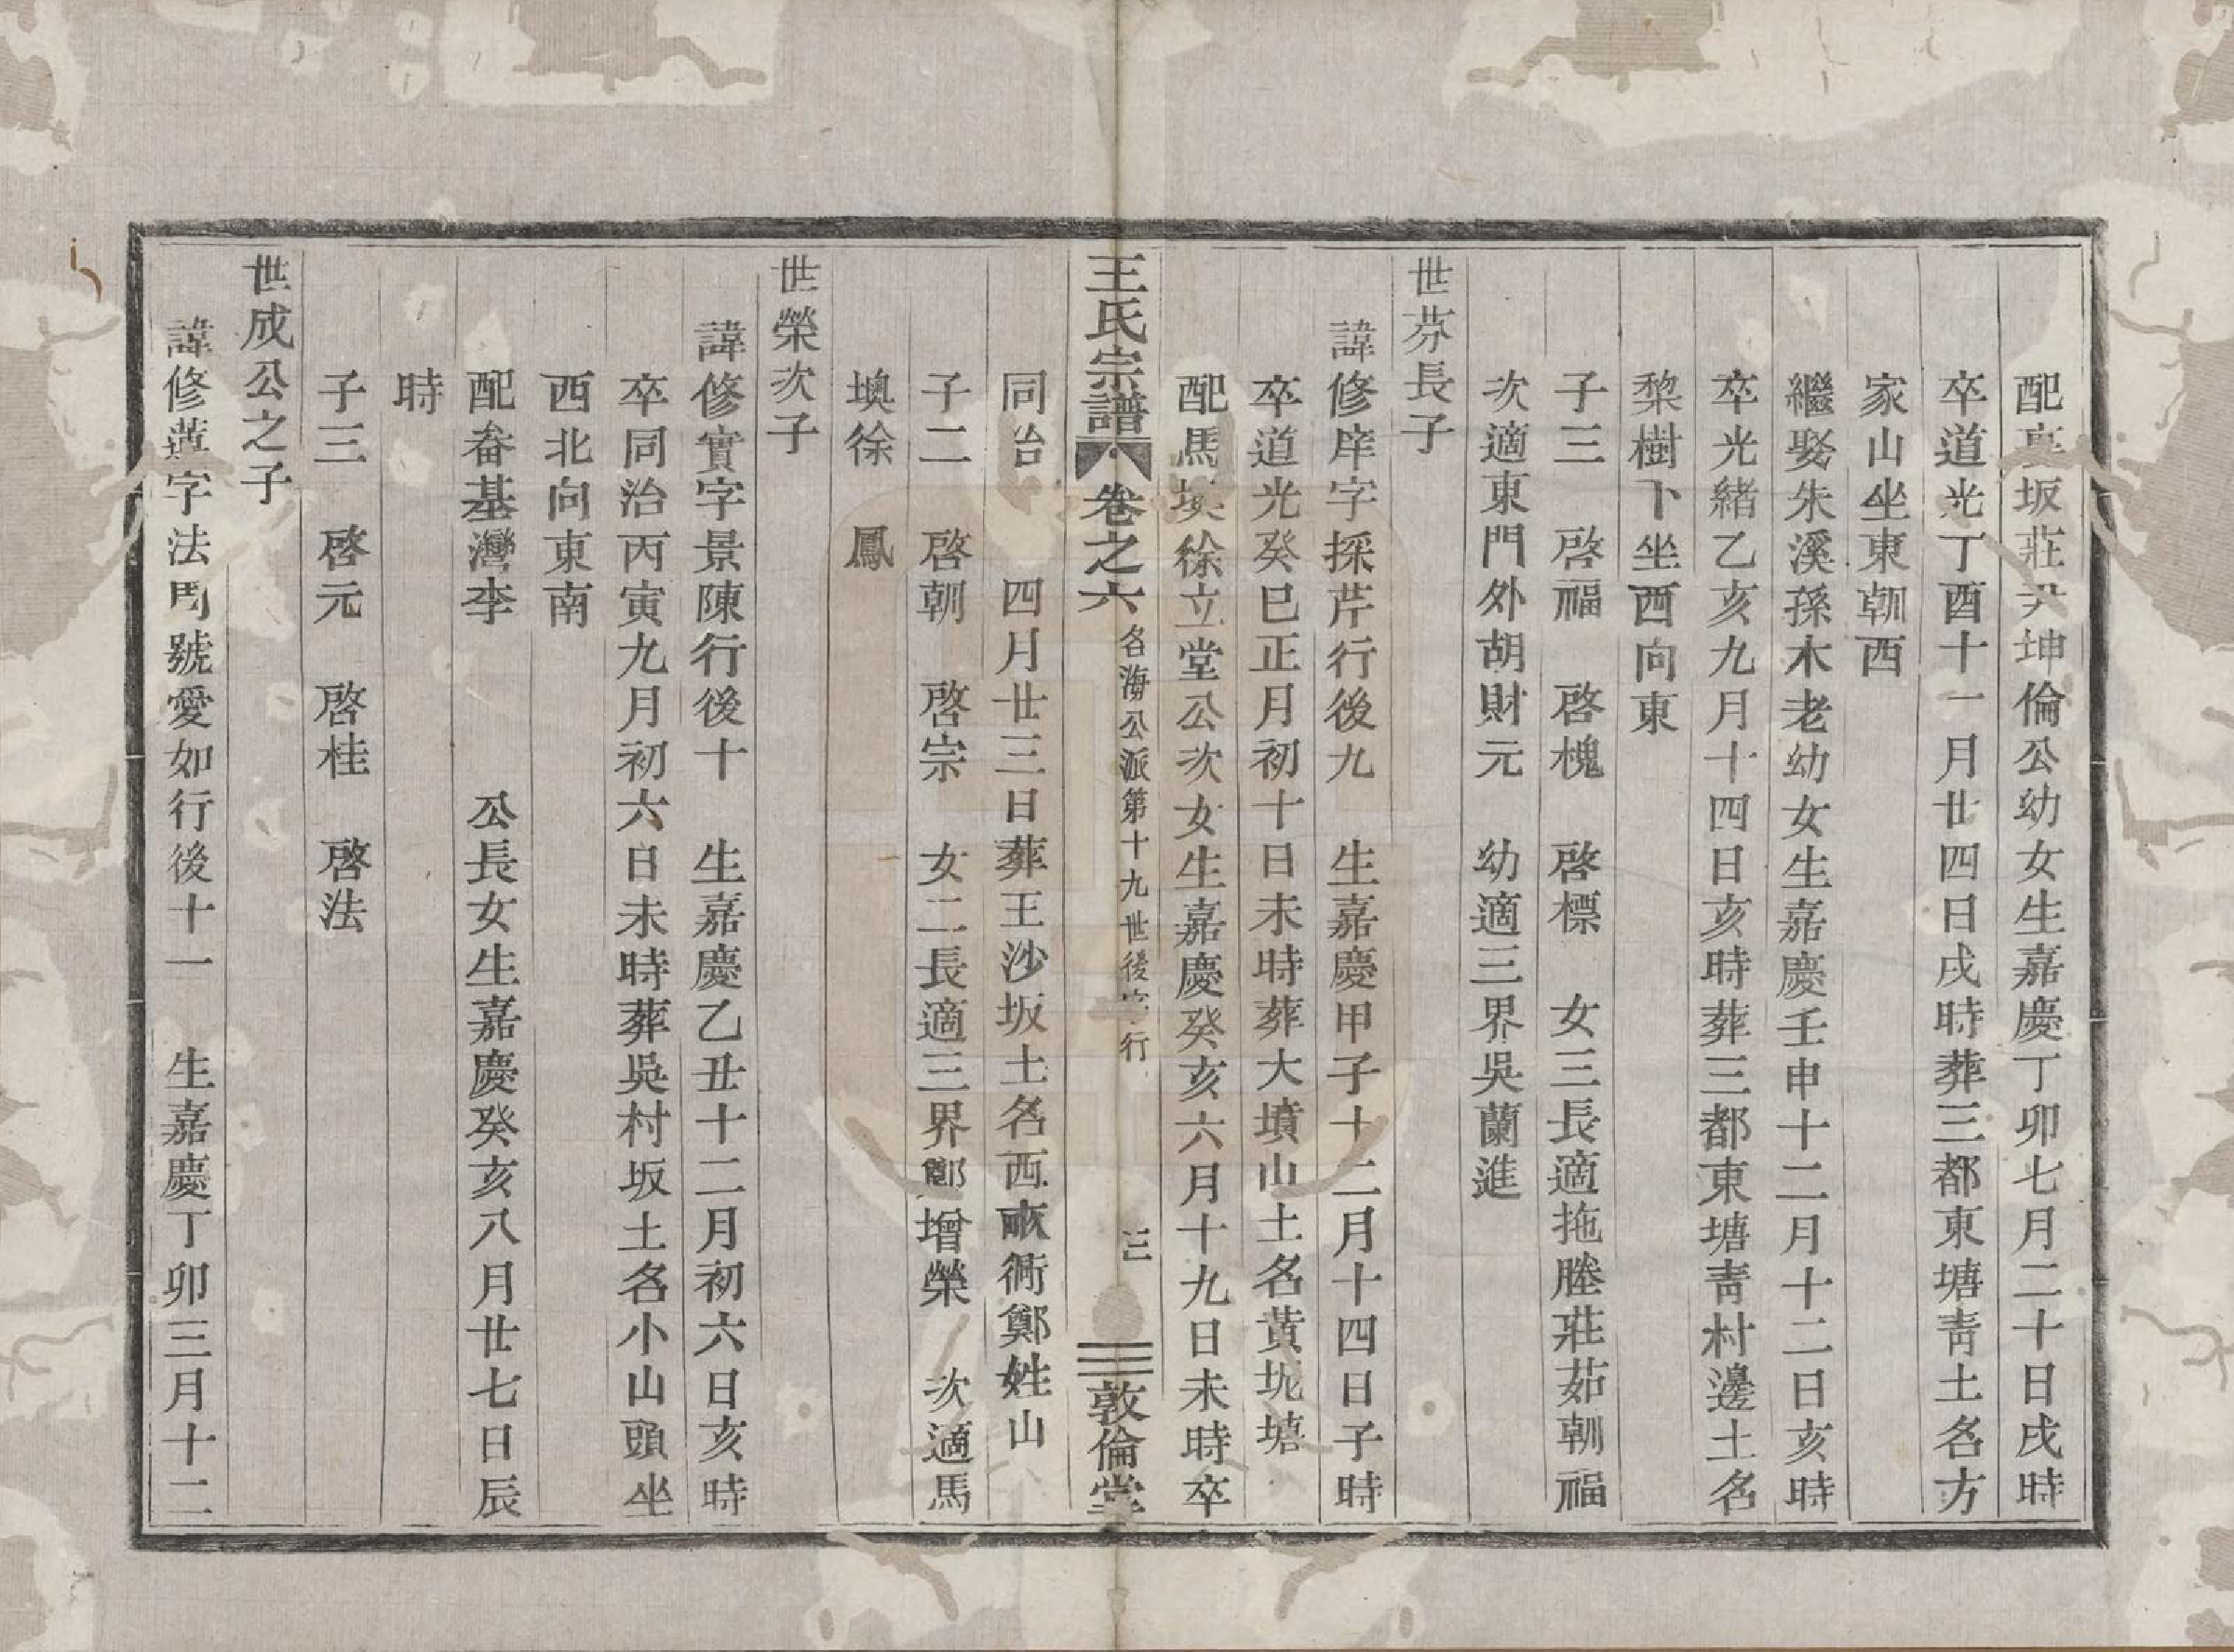 配裏坂莊尹坤倫公幼女生嘉慶丁卯七月二十日戌時
卒道光丁酉十一月廿四日戌時葬三都東塘靑土名方
家山坐東朝西
繼娶朱溪孫木老幼女生嘉慶壬申十二月十二日亥時
卒光緒乙亥九月十四日亥時葬三都東塘靑村邊土名
棃樹下坐西向東
子三 啓福 啓槐 啓標 女三長適拖塍莊茹朝福
次適東門外胡財元 幼適三界吳蘭進
世芬長子
諱修庠字採芹行後九 生嘉慶甲子十二月十四日子時
卒道光癸巳正月初十日未時葬大墳山土名黃坭塘
配馬墺徐立堂公次女生嘉慶癸亥六月十九日未時卒
王氏宗譜 卷之六 名海公派第十九世後行 三 敦倫堂
同治 四月廿三日葬王沙坂土名西畝衕鄭姓山
子二 啓朝 啓宗 女二長適三界鄭增榮 次適馬
墺徐 鳳
世榮次子
諱修實字景陳行後十 生嘉慶乙丑十二月初六日亥時
卒同治丙寅九月初六日未時葬吳村坂土名小山頭坐
西北向東南
配畚基灣李 公長女生嘉慶癸亥八月廿七日辰
時
子三 啓元 啓桂 啓法
世成公之子
諱修字法門號愛如行後十一 生嘉慶丁卯三月十二